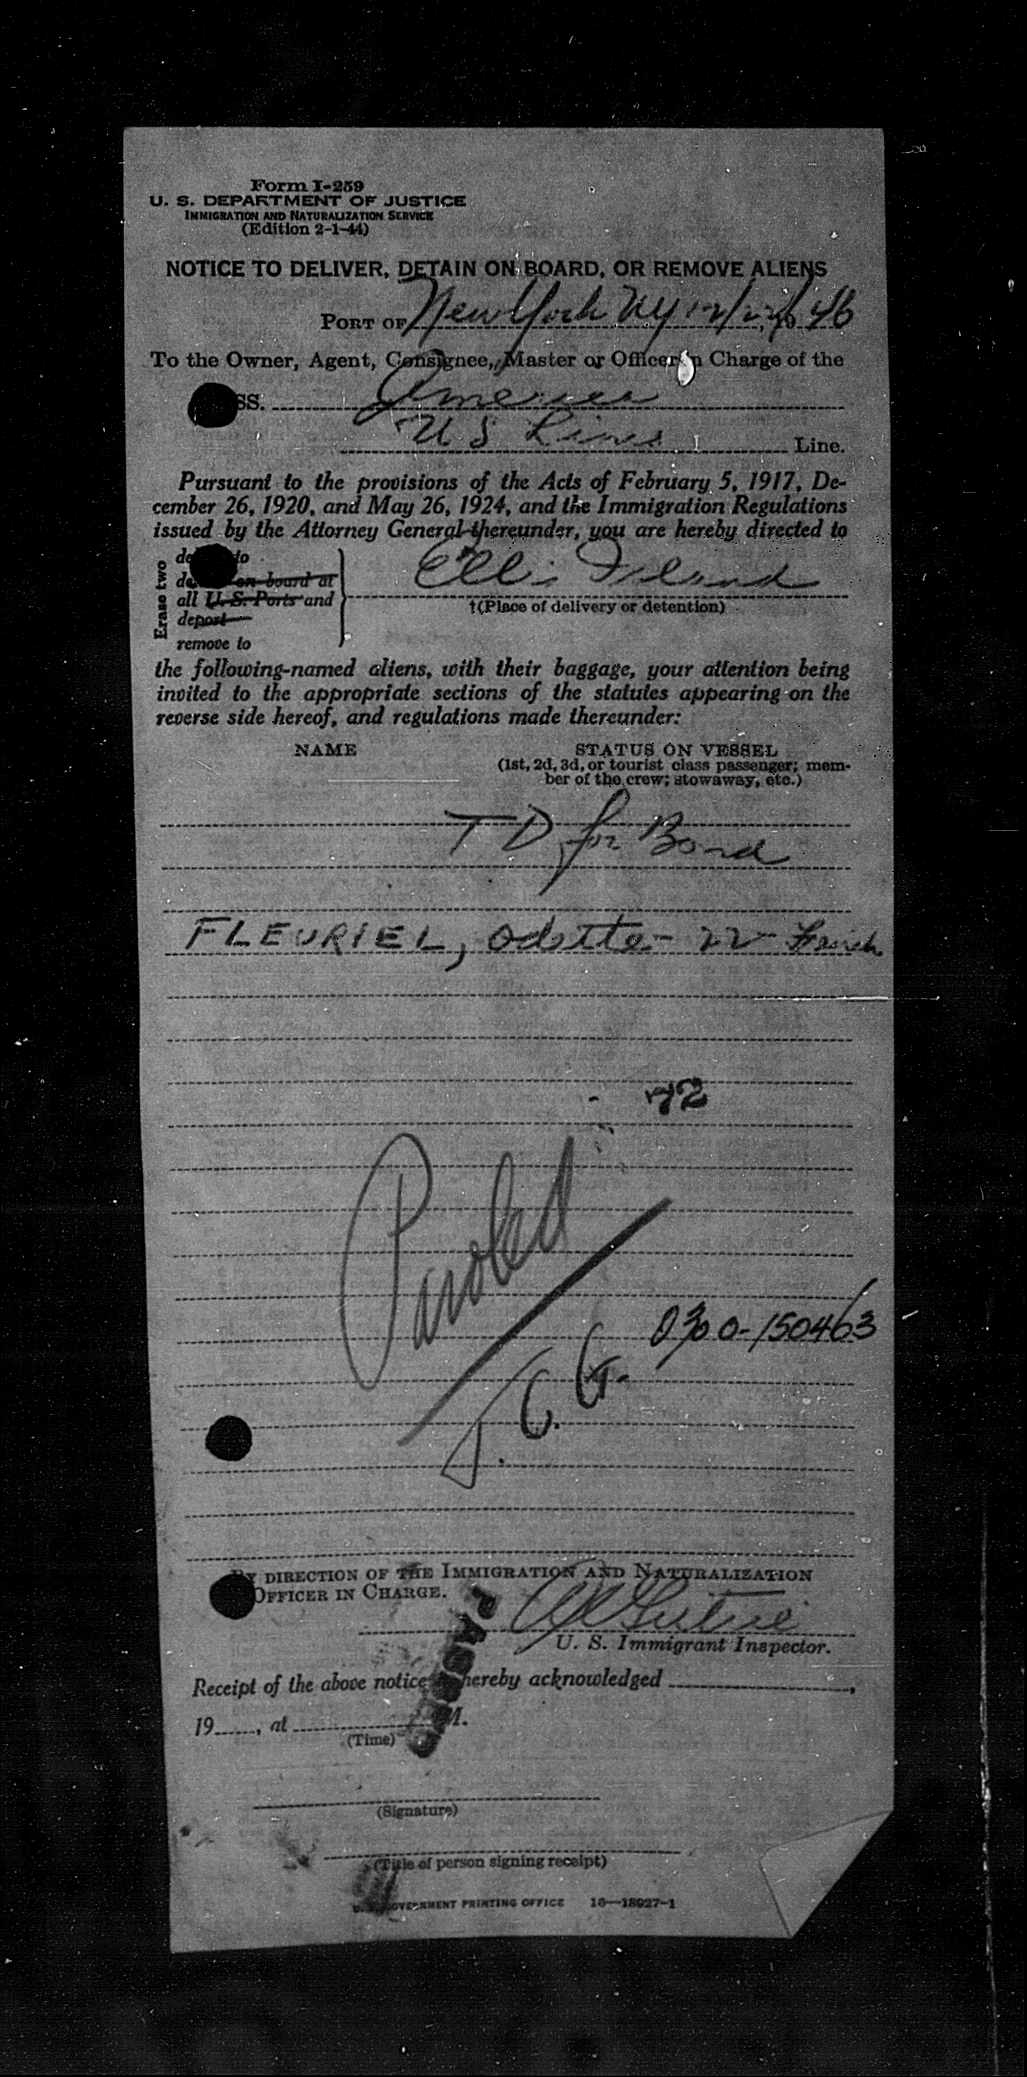 Form I-259
U. S. DEPARTMENT OF JUSTICE
IMMIGRATION AND NATURALIZATION SERVICE
(Edition 2-1-44)
NOTICE TO DELIVER, DETAIN ON BOARD, OR REMOVE ALIENS
PORT OF New York NY 12/22/46
To the Owner, Agent, Consignee, Master or Officer in Charge of the
SS. America
U S Lines Line.
Pursuant to the provisions of the Acts of February 5, 1917, De-
cember 26, 1920, and May 26, 1924, and the Immigration Regulations
issued by the Attorney General thereunder, you are hereby directed to
Erase two
to
on board at
all U. S. Ports and
deport
remove to
Ellis Island
†(Place of delivery or detention)
the following-named aliens, with their baggage, your attention being
invited to the appropriate sections of the statutes appearing on the
reverse side hereof, and regulations made thereunder:
NAME STATUS ON VESSEL
(1st, 2d, 3d, or tourist class passenger; mem-
ber of the crew; stowaway, etc.)
T D for Bond
FLEURIEL, Odette - 22 French
72
Paroled
0300-150463
J. C. G.
BY DIRECTION OF THE IMMIGRATION AND NATURALIZATION
OFFICER IN CHARGE.
U. S. Immigrant Inspector.
PAROLED
Receipt of the above notice is hereby acknowledged ,
19 , at M.
(Time)
(Signature)
(Title of person signing receipt)
U. S. GOVERNMENT PRINTING OFFICE 16—18927-1